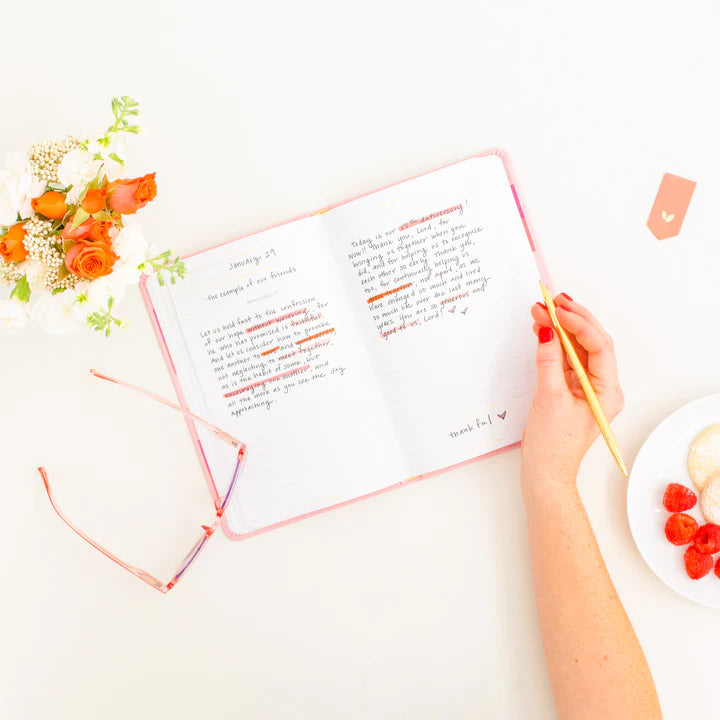 January 29
the example of our friends
Let us hold fast to the confession
of our hope without wavering, for
he who has promised is faithful.
And let us consider how to provoke
one another to love and good deeds,
not neglecting to meet together,
as is the habit of some, but
encouraging one another, and
all the more as you see the day
approaching.
Today is our 17th dativersary!
Wow! Thank you, Lord, for
bringing us together when you
did, and for helping us to recognize
each other so early. Thank you,
too, for continually helping us
grow together, not apart, as we
have changed so much and lived
so much life over the last many
years. You are so generous and
good to us, Lord! ♡ ♡
thankful ♡